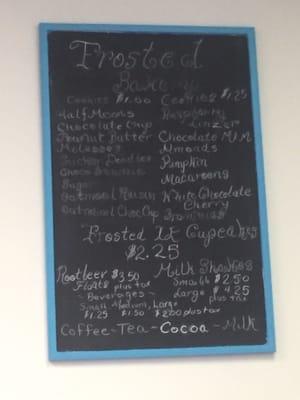 Frosted
Bakery
Cookies $1.00 Cookies $1.25
Half Moons Raspberry
Chocolate Chip Linzer
Peanut Butter Chocolate M&M
Molasses Almonds
Snicker Doodles Pumpkin
Choco Brownie Macaroons
Sugar White Chocolate
Oatmeal Raisin Cherry
Oatmeal Choc Chip Brownies
Frosted It Cupcakes
$2.25
Rootbeer $3.50 Milk Shakes
Floats plus tax Small $2.50
- Beverages - Large $4.25
Small, Medium, Large plus tax
$1.25 $1.50 $2.00 plus tax
Coffee-Tea-Cocoa-Milk